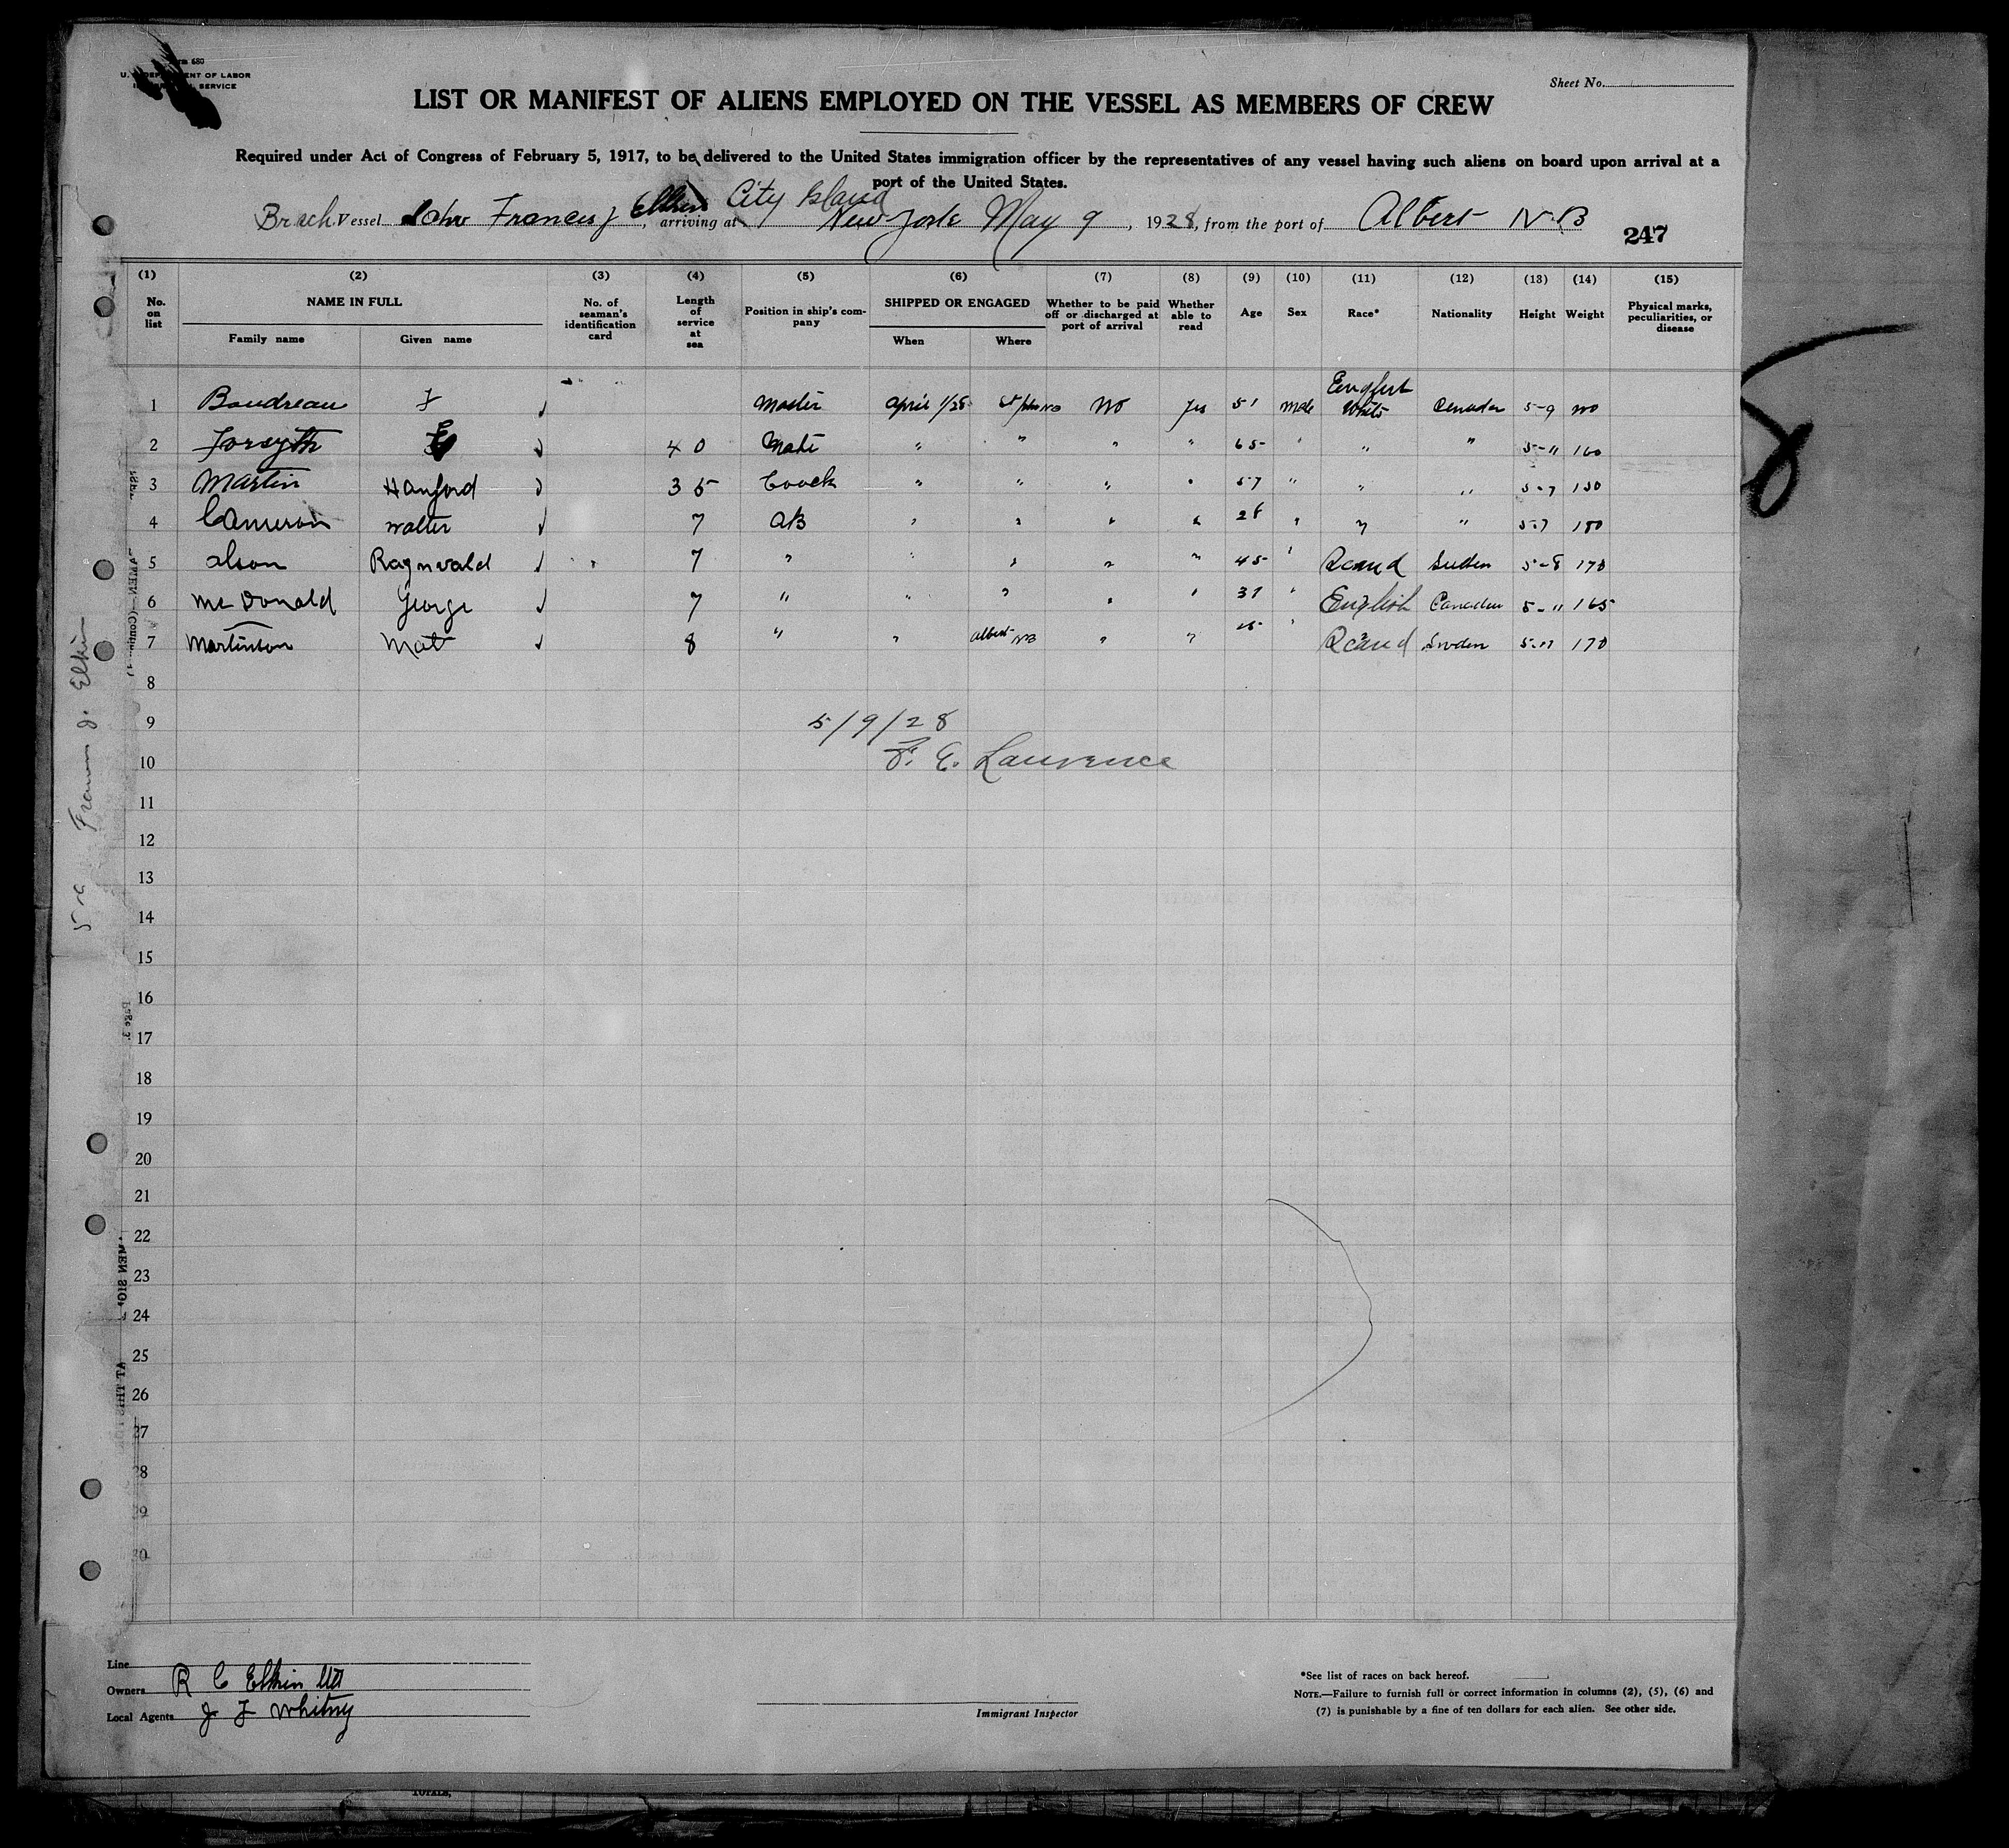 Form 680
U. S. DEPARTMENT OF LABOR
SERVICE
Sheet No.
LIST OR MANIFEST OF ALIENS EMPLOYED ON THE VESSEL AS MEMBERS OF CREW
Required under Act of Congress of February 5, 1917, to be delivered to the United States immigration officer by the representatives of any vessel having such aliens on board upon arrival at a
port of the United States.
City Island
Vessel Schr Francis J Elkin, arriving at New York May 9, 1928, from the port of Albert N.B
247
(1) (2) (3) (4) (5) (6) (7) (8) (9) (10) (11) (12) (13) (14) (15)
No. on list NAME IN FULL Family name Given name No. of seaman's identification card Length of service at sea Position in ship's company SHIPPED OR ENGAGED When Where Whether to be paid off or discharged at port of arrival Whether able to read Age Sex Race* Nationality Height Weight Physical marks, peculiarities, or disease
English
1 Boudreau F Master April 1/28 St John NB No Yes 51 Male White Canada 5-9
2 Forsyth E 40 Mate " " " " 65 " " " 5-11 160
3 Martin Hanford 35 Coock " " " " 57 " " " 5-7 150
4 Cameron Walter 7 AB " " " " 28 " " " 5-7 180
5 Olson Ragnvald 7 " " " " " 45 " Scand Sweden 5-8 170
6 McDonald George 7 " " " " " 37 " English Canadian 5-11 165
7 Martinson Mat 8 " " Albert NB " " 25 " Scand Sweden 5-11 170
8
9 5/9/28
10 F. E. Laurence
11
12
13
14
15
16
17
18
19
20
21
22
23
24
25
26
27
28
29
30
5-9 Francis J. Elkin
Line
Owners R C Elkin Ltd
Local Agents J F Whitny
Immigrant Inspector
*See list of races on back hereof.
NOTE.—Failure to furnish full or correct information in columns (2), (5), (6) and
(7) is punishable by a fine of ten dollars for each alien. See other side.
TOTALS,